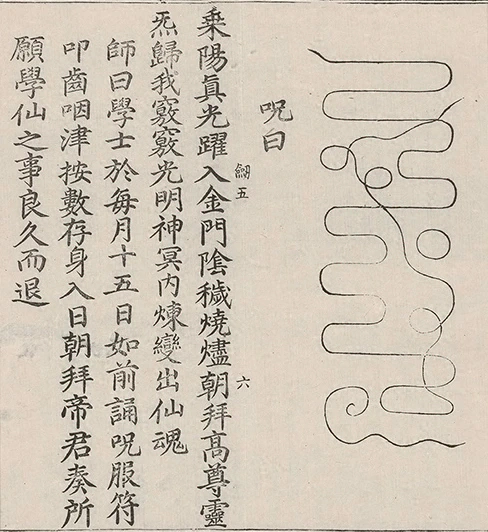 呪曰
五
六
乘陽眞光躍入金門陰穢燒燼朝拜高尊靈
炁歸我竅竅光明神冥内煉變出仙魂
師曰學士於每月十五日如前誦呪服符
叩齒咽津按數存身入日朝拜帝君奏所
願學仙之事良久而退